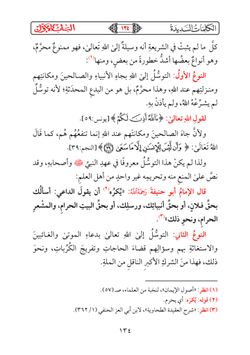 الكلمات السديدة
١٣٤
كلُّ ما لم يثبت في الشريعةِ أنه وسيلةٌ إلى اللهِ تعالى، فهو ممنوعٌ محرَّمٌ،
وهو أنواعٌ بعضُها أشدُّ خطورةً من بعضٍ، ومنها(١):
النوعُ الأولُ: التوسُّلُ إلى اللهِ بجاهِ الأنبياءِ والصالحينَ ومكانتِهم
ومنزلتِهم عند اللهِ، وهذا محرَّمٌ، بل هو من البدعِ المحدَثةِ؛ لأنه توسُّلٌ
لم يشرعْهُ اللهُ، ولم يأذنْ بهِ.
لقولِ اللهِ تعالى: ﴿ءَاللَّهُ أَذِنَ لَكُمْ﴾ [يونس:٥٩].
ولأنَّ جاهَ الصالحينَ ومكانتَهم عند اللهِ إنما تنفعُهُم هُم، كما قالَ
اللهُ تعالى: ﴿وَأَن لَّيْسَ لِلْإِنسَٰنِ إِلَّا مَا سَعَىٰ﴾ [النجم:٣٩].
ولذا لم يكنْ هذا التوسُّلُ معروفًا في عهدِ النبيِّ ﷺ وأصحابِهِ، وقد
نصَّ على المنعِ منه وتحريمِهِ غيرُ واحدٍ من أهلِ العلمِ:
قال الإمامُ أبو حنيفةَ رَحِمَهُ اللَّهُ: «يُكرَهُ(٢) أن يقولَ الداعي: أسألُك
بحقِّ فلانٍ، أو بحقِّ أنبيائِكَ، ورسلِكَ، أو بحقِّ البيتِ الحرامِ، والمشعرِ
الحرامِ، ونحوِ ذلكَ»(٣).
النوعُ الثاني: التوسُّلُ إلى اللهِ تعالى بدعاءِ الموتى والغائبينَ
والاستغاثةِ بهم وسؤالِهم قضاءَ الحاجاتِ وتفريجَ الكُرُباتِ، ونحوَ
ذلكَ، فهذا منَ الشركِ الأكبرِ الناقلِ من الملةِ.
(١) انظر: «أصول الإيمان»، لنخبة من العلماء، ص(٥٧).
(٢) قوله: يُكرَه: أي يحرم.
(٣) انظر: «شرح العقيدة الطحاوية»، لابن أبي العز الحنفي (١/ ٣١٢).
١٣٤